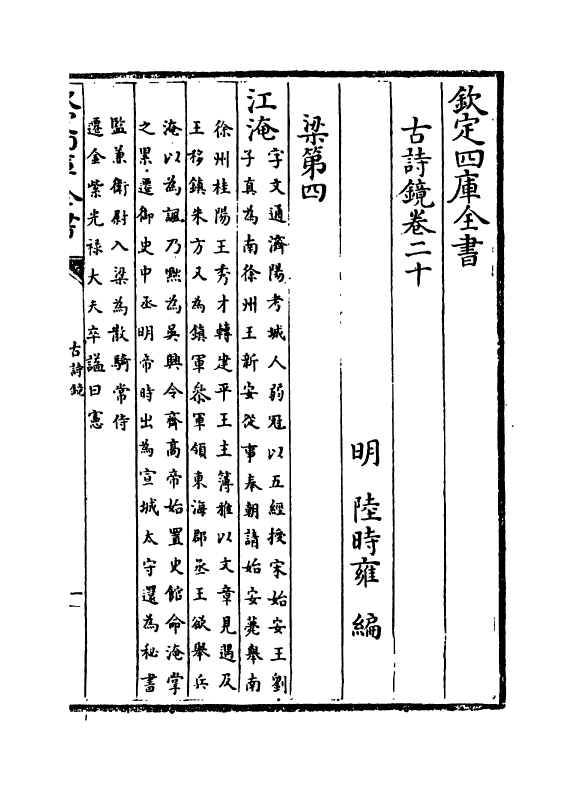 欽定四庫全書
古詩鏡卷二十
明 陸時雍 編
梁第四
江淹
字文通濟陽考城人弱冠以五經授宋始安王劉
子真為南徐州王新安從事奉朝請始安薨舉南
徐州桂陽王秀才轉建平王主簿雅以文章見遇及
王移鎮朱方又為鎮軍叅軍領東海郡丞王欲舉兵
淹以為諷乃黜為吳興令齊高帝始置史館命淹掌
之累遷御史中丞明帝時出為宣城太守還為秘書
監兼衛尉入梁為散騎常侍
遷金紫光祿大夫卒謚曰憲
古詩鏡
一